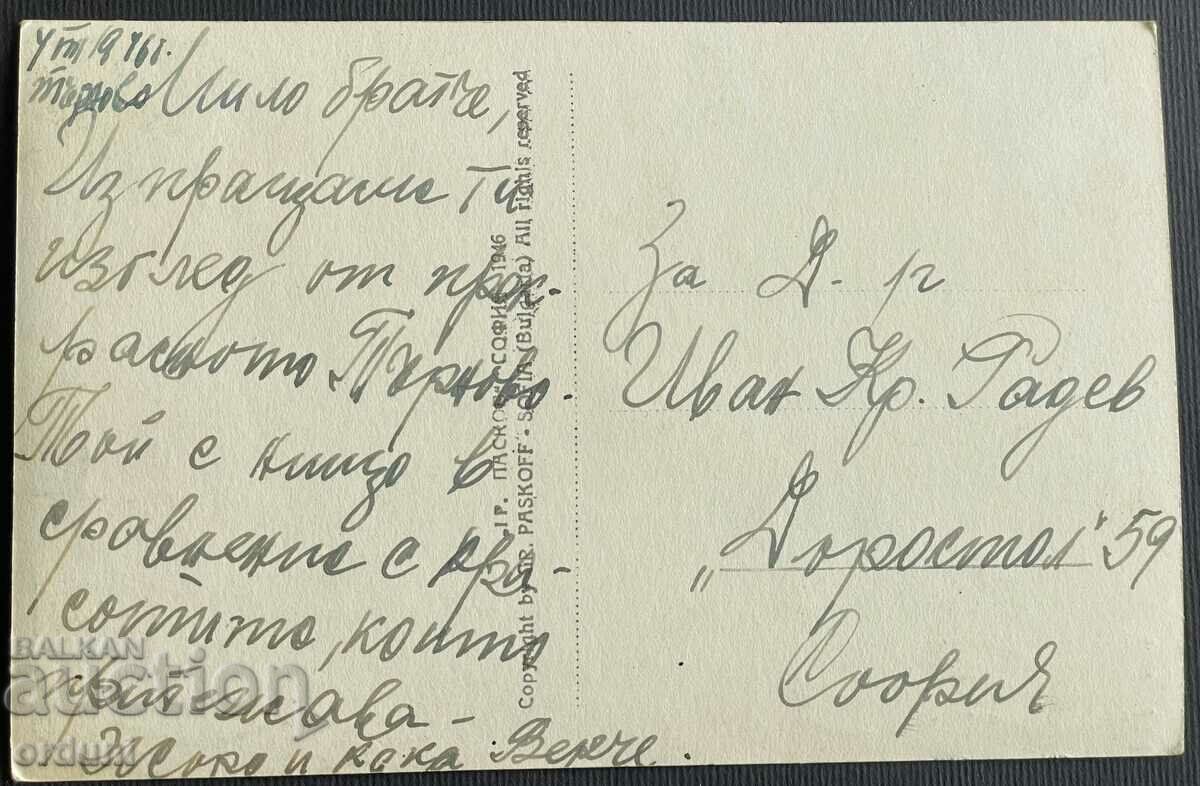 VIII 1946 г.
Търново
Мило братче,
Изпращаме Ти
изглед от прек-
расното Търново.
Той е нищо в
сравнение с кра-
сотите, които
притежава -
и кака Венче.
ГР. ПАСКОВ - СОФИЯ 1946
Copyright by GR. PASKOFF - SOFIA (Bulgaria) All rights reserved
За Д-р
Иван Кр. Радев
„Доростол" 59
София
BALKAN
auction
orduni